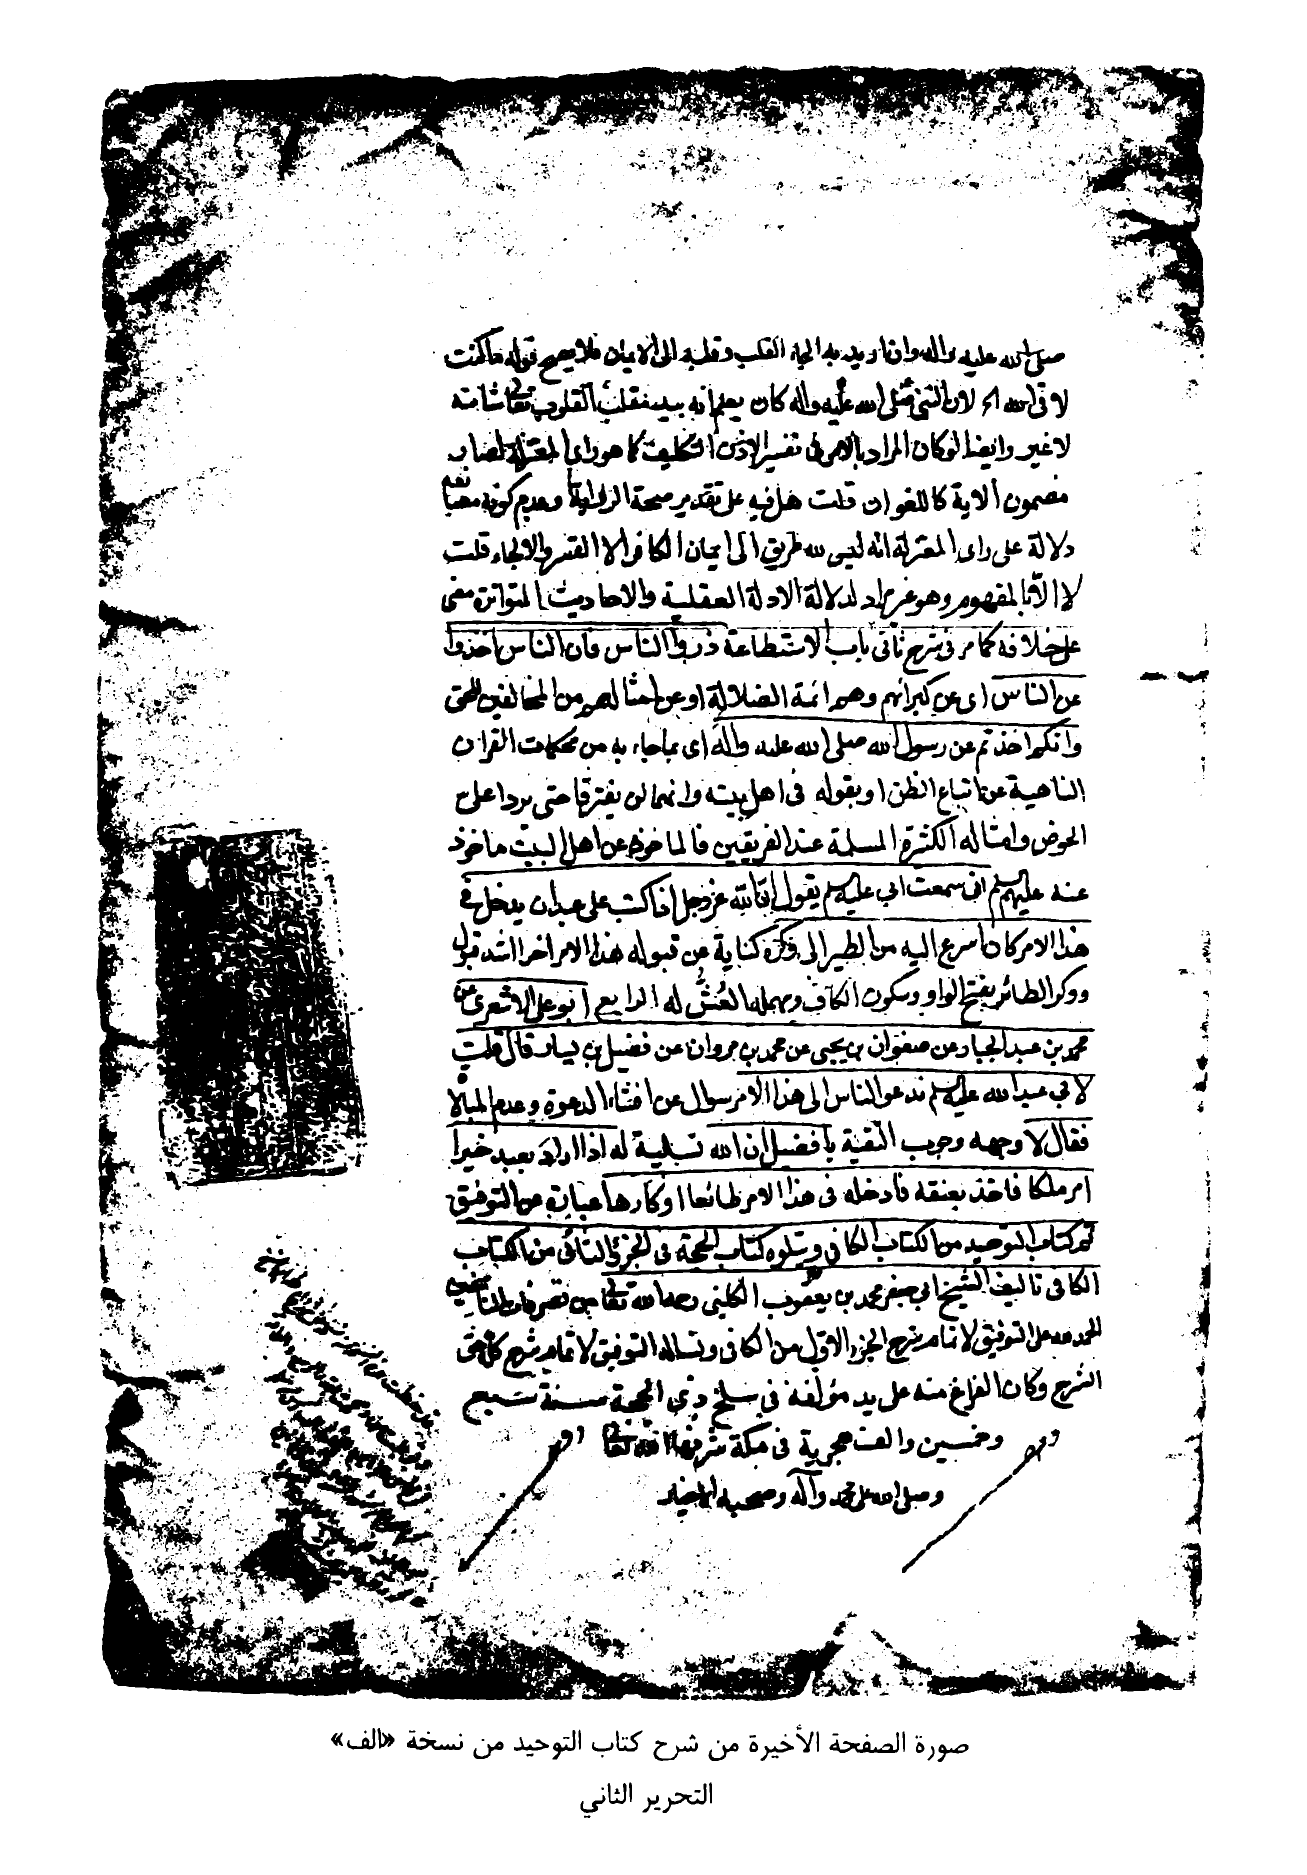 صلى الله عليه واله وان اريد به الجاء القلب وقلبه الى الايمان فلا يصح قوله ما كنت
لا لان النبي صلى الله عليه واله كان يعلم انه بيد مقلب القلوب تعالى شانه
لا غير وايضا لو كان المراد بالامر في تفسير الاذن التكليف كما هو راى المعتزلة لصار
مضمون الاية كاللغو ان قلت هل فيه على تقدير صحة الرواية وعدم كونه
دلالة على راى المعتزلة انه ليس لله طريق الى ايمان الكافر الا القسر والالجاء قلت
لا الا بالمفهوم وهو غير مراد لدلالة الادلة العقلية والاحاديث المتواترة معنى
على خلافه كما مر في شرح ثاني باب الاستطاعة ذروا الناس فان الناس اخذوا
عن الناس اى عن كبرائهم وهم ائمة الضلالة او عن امثالهم من المخالفين للحق
وانكم اخذتم عن رسول الله صلى الله عليه واله اى بما جاء به من محكمات القران
الناهية عن اتباع الظن او بقوله في اهل بيته وانهما لن يفترقا حتى يردا على
الحوض وامثاله الكثيرة المسلمة عند الفريقين فالماخوذ عن اهل البيت ماخوذ
عنه عليهم السلم انى سمعت ابي عليه السلم يقول ان الله عز وجل اذا كتب على عبد ان يدخل في
هذا الامر كان اسرع اليه من الطير الى وكره كناية عن قبوله هذا الامر اخرا اشد قبول
ووكر الطائر بفتح الواو وسكون الكاف ومهملة العش له الرابع ابو على الاشعرى عن
محمد بن عبد الجبار عن صفوان بن يحيى عن محمد بن مروان عن فضيل بن يسار قال قلت
لابي عبد الله عليه السلم ندعو الناس الى هذا الامر سوال عن افشاء الدعوة وعدم المبالاة
فقال لا وجهه وجوب التقية يا فضيل ان الله تسلية له اذا اراد بعبد خيرا
امر ملكا فاخذ بعنقه فادخله في هذا الامر طائعا او كارها عبارة عن التوفيق
تم كتاب التوحيد من الكتاب الكافي ويتلوه كتاب الحجة في الجزء الثاني من الكتاب
الكافي تاليف الشيخ ابي جعفر محمد بن يعقوب الكليني رحمه الله تعالى من تصرفات الناسخين
الحمد لله على التوفيق لاتمام شرح الجزء الاول من الكافي ونساله التوفيق لاتمام شرح كله حق
الشرح وكان الفراغ منه على يد مؤلفه في سلخ ذي الحجة سنة سبع
وخمسين والف هجرية في مكة شرفها الله تعالى
وصلى الله على محمد وآله وصحبه الاخيار
صورة الصفحة الأخيرة من شرح كتاب التوحيد من نسخة «الف»
التحرير الثاني